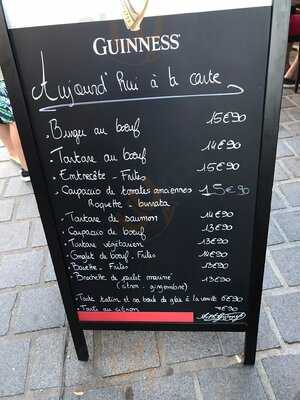 GUINNESS
Aujourd'hui à la carte
Burger au bœuf 15€90
Tartare au bœuf 14€90
Entrecôte - Frites 15€90
Carpaccio de tomates anciennes 15€90
Roquette - burrata
Tartare de saumon 14€90
Carpaccio de bœuf 13€90
Tartare végétarien 13€90
Onglet de bœuf. Frites 14€90
Bavette - Frites 13€90
Brochette de poulet mariné 13€90
(citron - gingembre)
Tarte tatin et sa boule de glace à la vanille 6€90
Tarte au citron 7€90